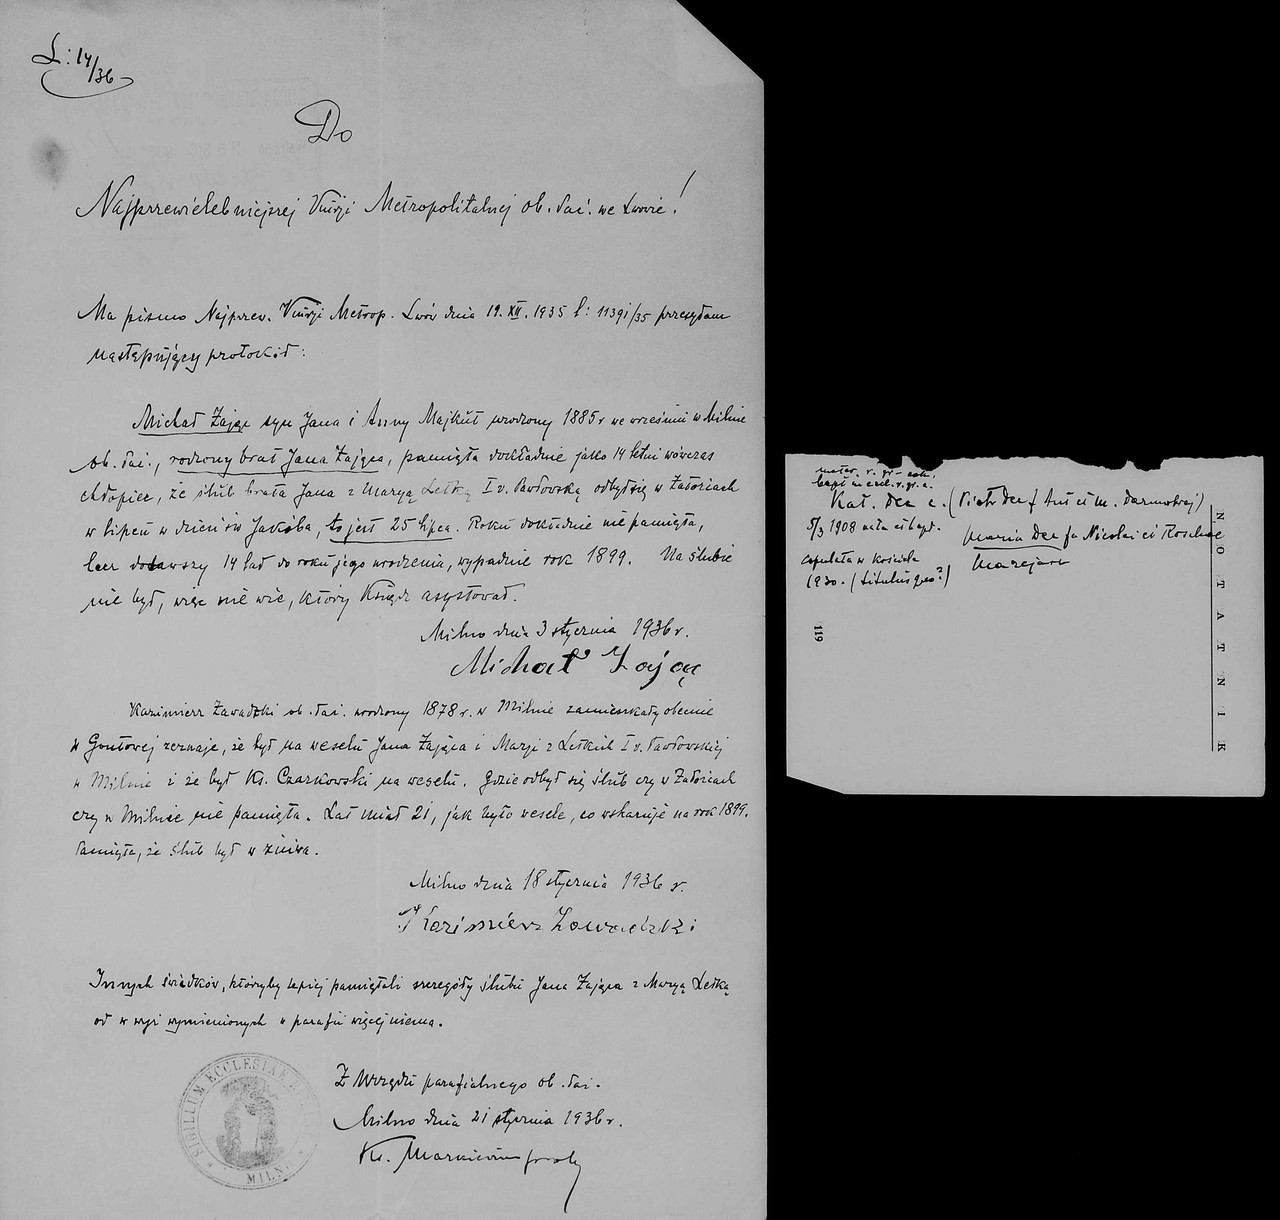 L: 14/36
Do
Najprzewielebniejszej Kurji Metropolitalnej ob. łać. we Lwowie!
Na pismo Najprzew. Kurji Metrop. Lwów dnia 19. XII. 1935 l: 11391/35 przesyłam
następujący protokół:
Michał Zając syn Jana i Anny Majkut urodzony 1885 r we wrześniu w Milnie
ob. łać., rodzony brat Jana Zająca, pamięta dokładnie jako 14 letni wówczas
chłopiec, że ślub brata Jana z Maryą Letką I v. Pawłowską odbył się w Załoścach
w lipcu w dzień św Jakóba, to jest 25 lipca. Roku dokładnie nie pamięta,
lecz dodawszy 14 lad do roku jego urodzenia, wypadnie rok 1899. Na ślubie
nie był, więc nie wie, który Ksiądz asystował.
Milno dnia 3 stycznia 1936 r.
Michał Zając
Kazimierz Zawadzki ob. łać. urodzony 1878 r. w Milnie zamieszkały obecnie
w Gontowej zeznaje, że był na weselu Jana Zająca i Marji z Letkich I v. Pawłowskiej
w Milnie i że był Ks. Czarkowski na weselu. Gdzie odbył się ślub czy w Załoścach
czy w Milnie nie pamięta. Lat miał 21, jak było wesele, co wskazuje na rok 1899.
Pamięta, że ślub był w żniwa.
Milno dnia 18 stycznia 1936 r.
Kazimierz Zawadzki
Innych świadków, któryby lepiej pamiętali szczegóły ślubu Jana Zająca z Maryą Letką
od w wyż wymienionych w parafii więcej niema.
Z Urzędu parafialnego ob. łać.
Milno dnia 21 stycznia 1936 r.
Ks.
SIGILLUM ECCLESIAE
MILN.
mater. r. gr-cath.
bapt in eccl. r. gr. c.
Kat. Der c. (Piotr Der f Ant ei m. Darmobraj)
5/3 1908 nata et bapt.
Maria Der fa Nicolai ei Roschae
Mazejar
copulata w Kościele
1930. (titulus quo?)
119
NOTATNIK